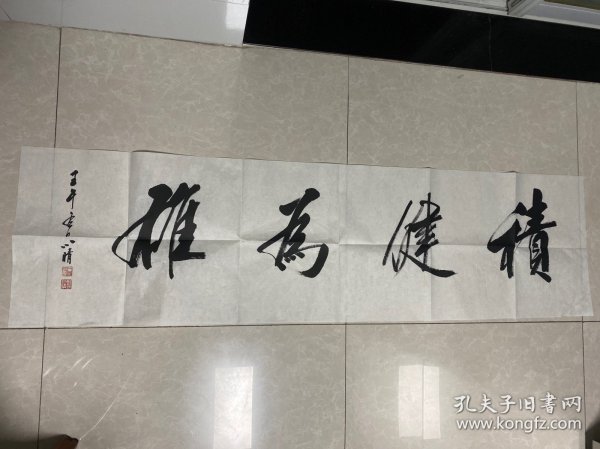 積健為雄
壬午
晴
孔夫子旧书网
www.kongfz.com